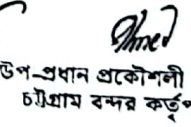 Ahmed
উপ-প্রধান প্রকৌশলী
চট্টগ্রাম বন্দর কর্তৃপ